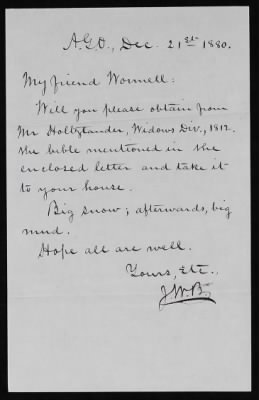 A.G.O., Dec. 21st 1880.
My friend Wormell:
Will you please obtain from
Mr Holtzlander, Widows Div., 1812.
the bible mentioned in the
enclosed letter and take it
to your house.
Big snow; afterwards, big
mud.
Hope all are well.
Yours, Etc.,
J.W.B.